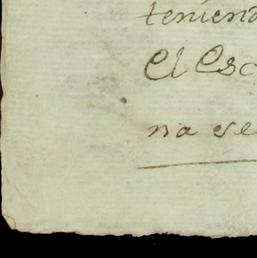 teniend
El Esc
na se